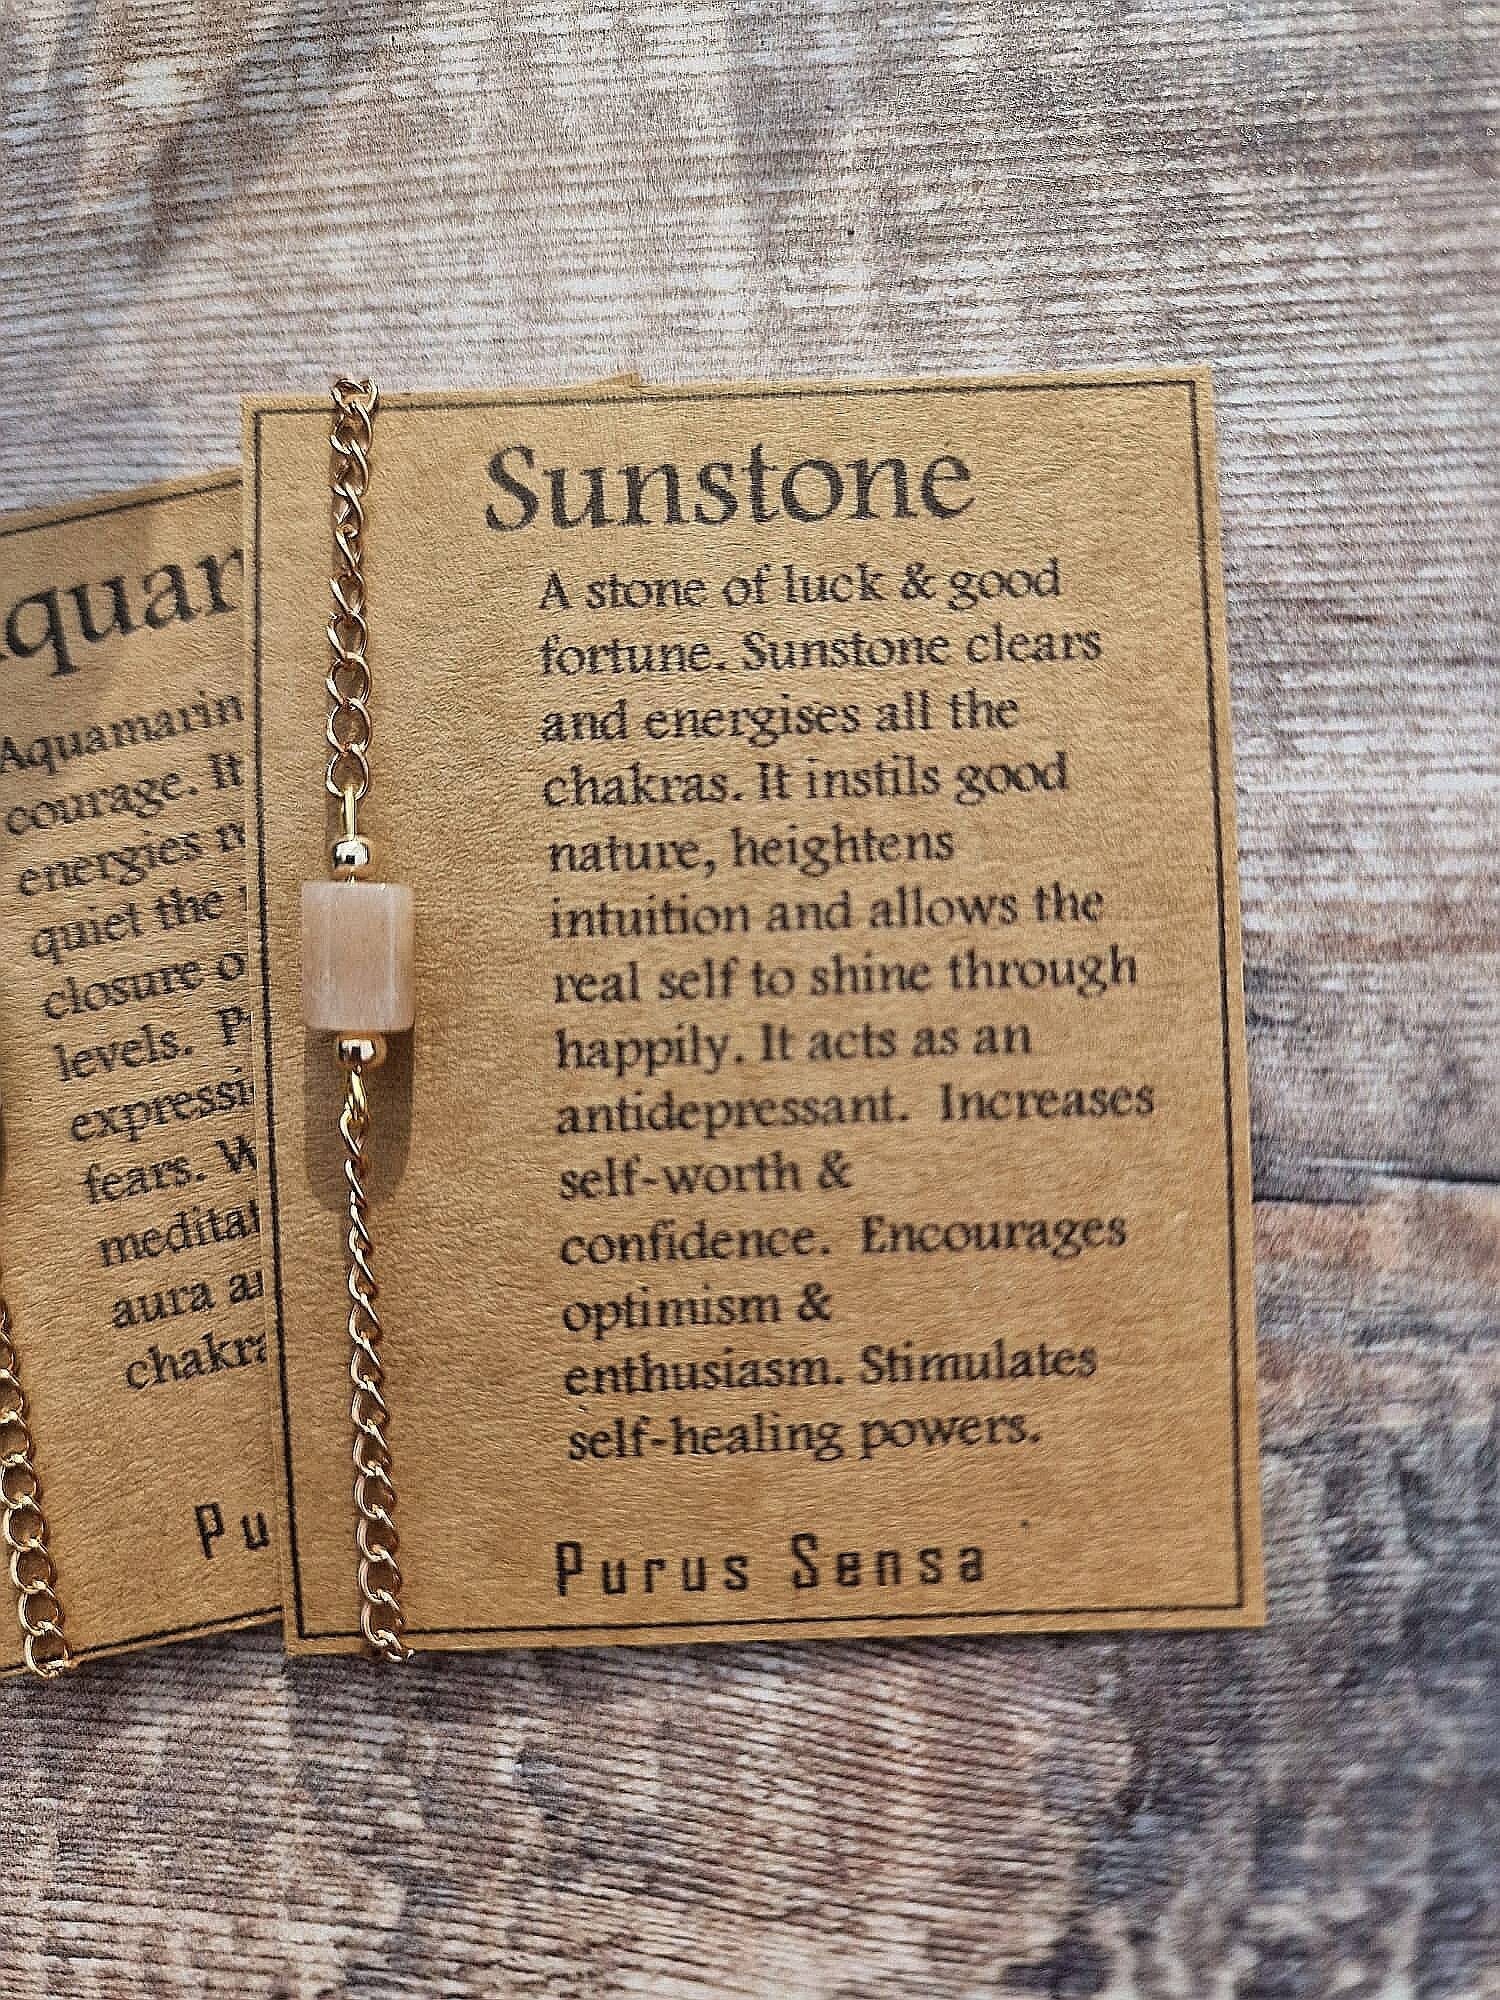 Sunstone
A stone of luck & good
fortune. Sunstone clears
and energises all the
chakras. It instils good
nature, heightens
intuition and allows the
real self to shine through
happily. It acts as an
antidepressant. Increases
self-worth &
confidence. Encourages
optimism &
enthusiasm. Stimulates
self-healing powers.
Purus Sensa
quar
Aquamarin
courage. It
energies n
quiet the
closure o
levels. P
expressi
fears. W
meditat
aura a
chakra
Pu